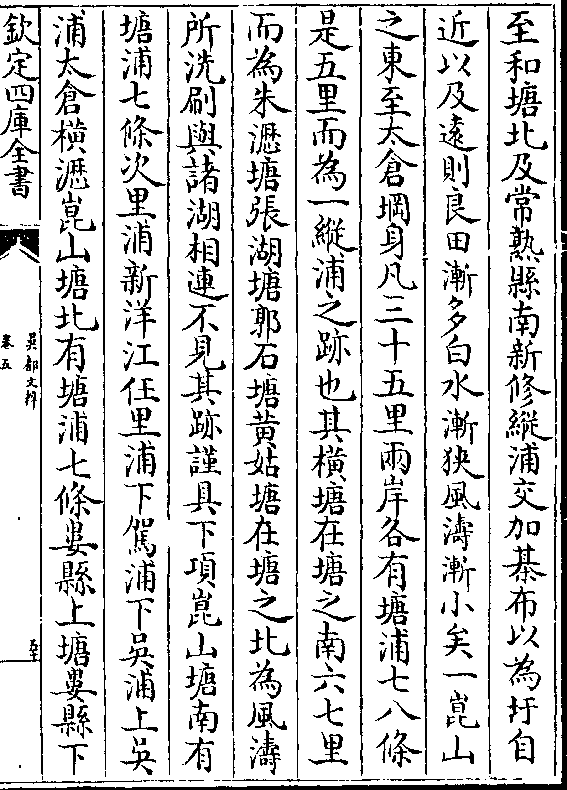 至和塘北及常熟縣南新修縱浦交加棊布以為圩自
近以及遠則良田漸多白水漸狹風濤漸小矣一崑山
之東至太倉堈身凡三十五里兩岸各有塘浦七八條
是五里而為一縱浦之跡也其橫塘在塘之南六七里
而為朱瀝塘張湖塘郭石塘黄姑塘在塘之北為風濤
所洗刷與諸湖相連不見其跡謹具下項崑山塘南有
塘浦七條次里浦新洋江任里浦下駕浦下吳浦上吳
浦太倉橫瀝崑山塘北有塘浦七條婁縣上塘婁縣下
欽定四庫全書
吳都文粹
卷五